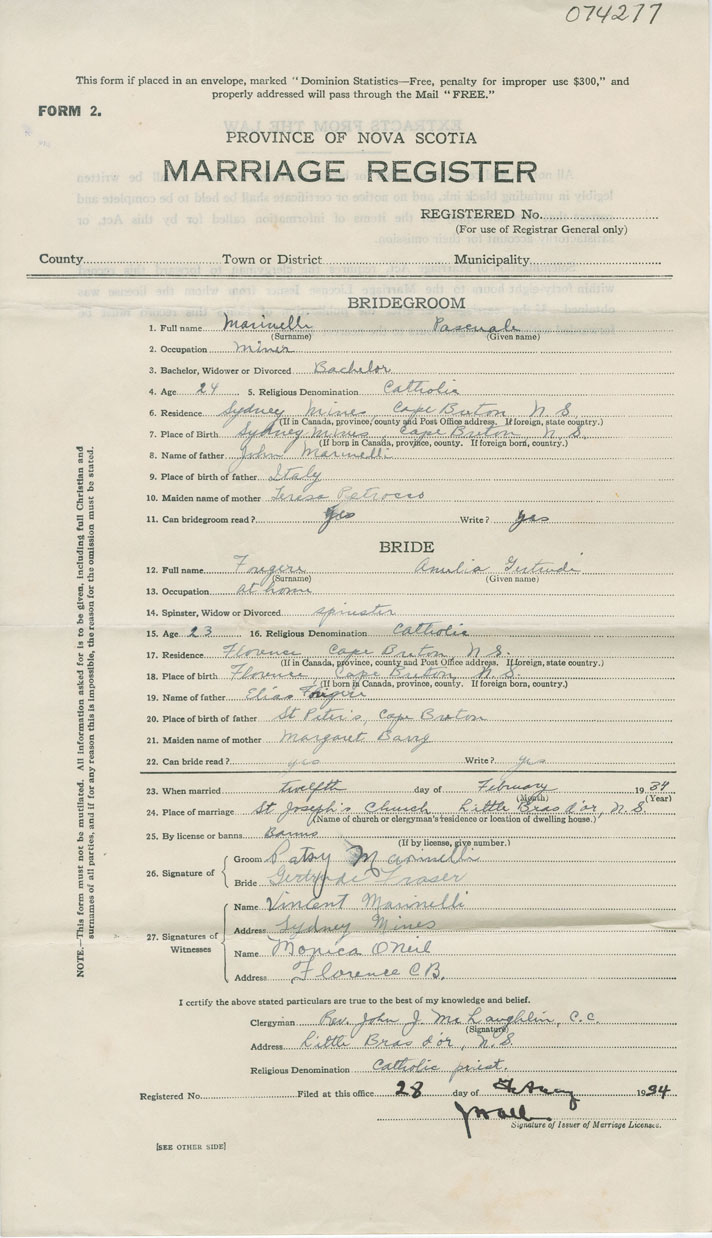 074277
This form if placed in an envelope, marked "Dominion Statistics—Free, penalty for improper use $300," and
properly addressed will pass through the Mail "FREE."
FORM 2.
PROVINCE OF NOVA SCOTIA
MARRIAGE REGISTER
REGISTERED No.
(For use of Registrar General only)
County Town or District Municipality
BRIDEGROOM
1. Full name Marinelli Pasquale
(Surname) (Given name)
2. Occupation Miner
3. Bachelor, Widower or Divorced Bachelor
4. Age 24 5. Religious Denomination Catholic
6. Residence Sydney Mines, Cape Breton N. S.
(If in Canada, province, county and Post Office address. If foreign, state country.)
7. Place of Birth Sydney Mines, Cape Breton N. S.
(If born in Canada, province, county. If foreign born, country.)
8. Name of father John Marinelli
9. Place of birth of father Italy
10. Maiden name of mother Teresa Petrocco
11. Can bridegroom read? yes Write? yes
BRIDE
12. Full name Fougere Amelia Gertrude
(Surname) (Given name)
13. Occupation at home
14. Spinster, Widow or Divorced spinster
15. Age 23 16. Religious Denomination Catholic
17. Residence Florence Cape Breton, N. S.
(If in Canada, province, county and Post Office address. If foreign, state country.)
18. Place of Birth Florence, Cape Breton N. S.
(If born in Canada, province, county. If foreign born, country.)
19. Name of father Elias Fougere
20. Place of birth of father St Peter's, Cape Breton
21. Maiden name of mother Margaret Barry
22. Can bride read? yes Write? yes
23. When married twelfth day of February 1934
(Month) (Year)
24. Place of marriage St Joseph's Church Little Bras d'or, N. S.
(Name of church or clergyman's residence or location of dwelling house.)
25. By license or banns Banns
(If by license, give number.)
26. Signature of
Groom Patsy Marinelli
Bride Gertrude Fraser
27. Signatures of Witnesses
Name Vincent Marinelli
Address Sydney Mines
Name Monica O'Neil
Address Florence C B.
I certify the above stated particulars are true to the best of my knowledge and belief.
Clergyman Rev. John J. McLaughlin, C.C.
(Signature)
Address Little Bras d'or, N. S.
Religious Denomination Catholic priest.
Registered No. Filed at this office 28 day of 1934
Signature of Issuer of Marriage Licenses.
[SEE OTHER SIDE]
NOTE.—This form must not be mutilated. All information asked for is to be given, including full Christian and
surnames of all parties, and if for any reason this is impossible, the reason for the omission must be stated.